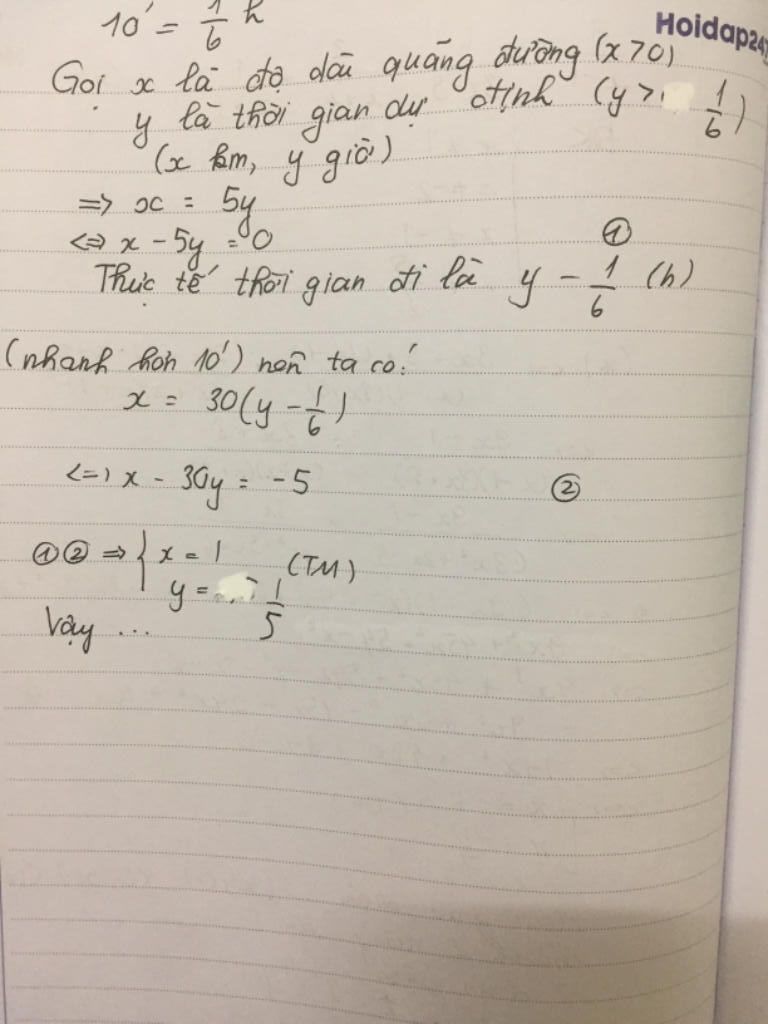 10' = 1/6 h
Hoidap247
Gọi x là độ dài quãng đường (x > 0)
y là thời gian dự định (y > 1/6)
(x km, y giờ)
=> x = 5y
<=> x - 5y = 0 ①
Thực tế thời gian đi là y - 1/6 (h)
(nhanh hơn 10') nên ta có:
x = 30(y - 1/6)
<=> x - 30y = -5 ②
①② => { x = 1
y = 1/5 (TM)
Vậy ...